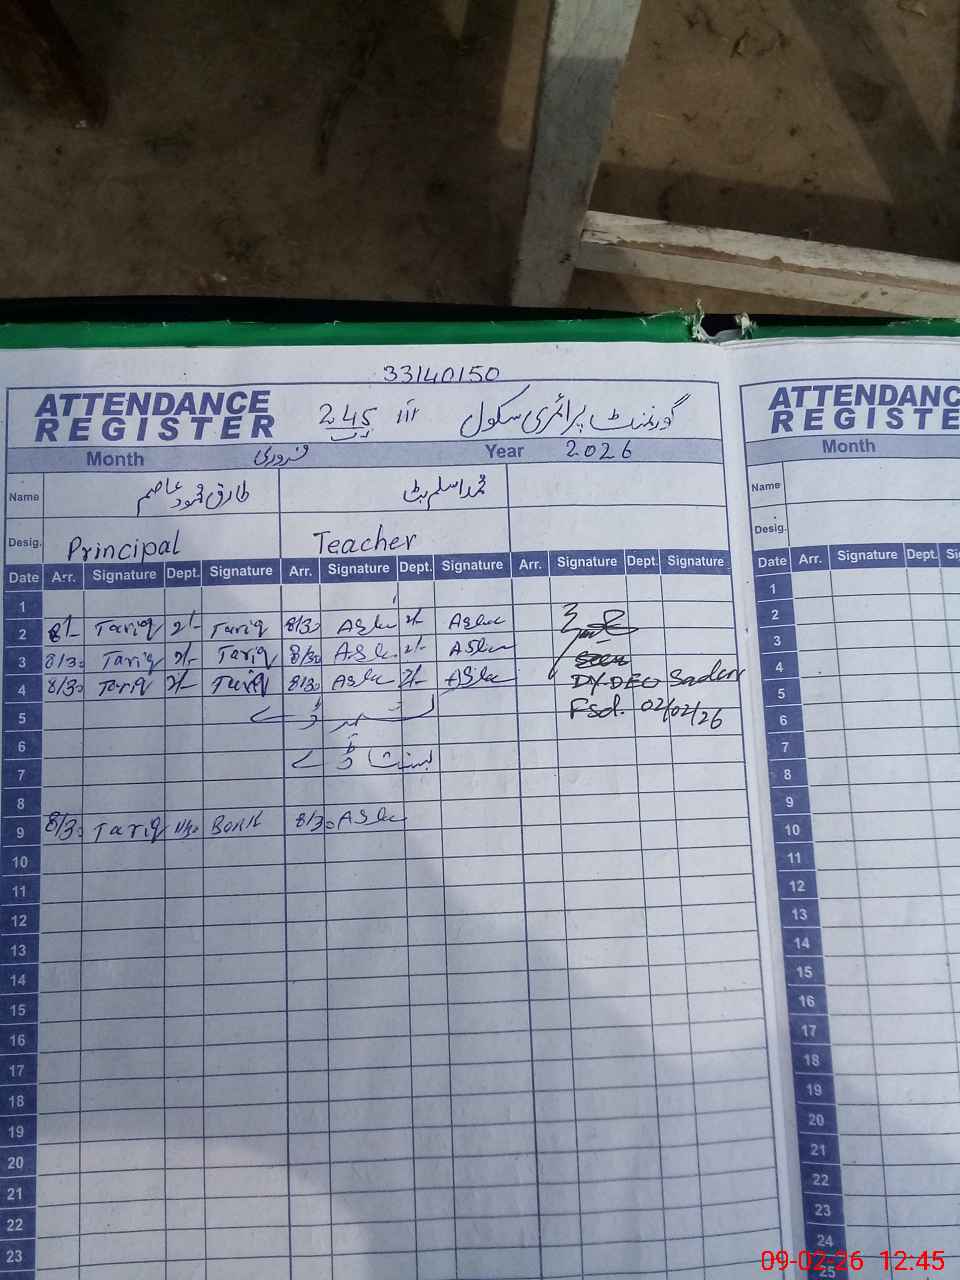 33140150
ATTENDANCE
REGISTER
گورنمنٹ پرائمری سکول 245 رب III
Month فروری Year 2026
Name طارق محمود عاصم محمد اسلم بٹ
Desig. Principal Teacher
Date Arr. Signature Dept. Signature Arr. Signature Dept. Signature Arr. Signature Dept. Signature
1
2 8/- Tariq 2/- Tariq 8/30 Aslam 2/- Aslam
3 8/30 Tariq 2/- Tariq 8/30 Aslam 2/- Aslam
4 8/30 Tariq 2/- Tariq 8/30 Aslam 2/- Aslam
Seen
DY-DEO Sadar
Fsd. 02/02/26
5 کشمیر ڈے
6
7 بسنت ڈے
8
9 8/30 Tariq 8/30 Aslam
10
11
12
13
14
15
16
17
18
19
20
21
22
23
ATTENDANC
REGISTE
Month
Name
Desig.
Date Arr. Signature Dept. Si
1
2
3
4
5
6
7
8
9
10
11
12
13
14
15
16
17
18
19
20
21
22
23
24
25
09-02-26 12:45